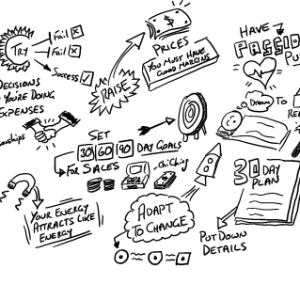 TRY
Fail
Fail
Success
DECISIONS
YOU'RE DOING
EXPENSES
RAISE
$
PRICES
YOU MUST HAVE
GOOD MARGINS
HAVE
PASSION
SET
30 60 90 DAY GOALS
FOR SALES
chi ching
YOUR ENERGY
ATTRACTS LIKE
ENERGY
ADAPT
TO CHANGE
30 DAY
PLAN
PUT DOWN
DETAILS